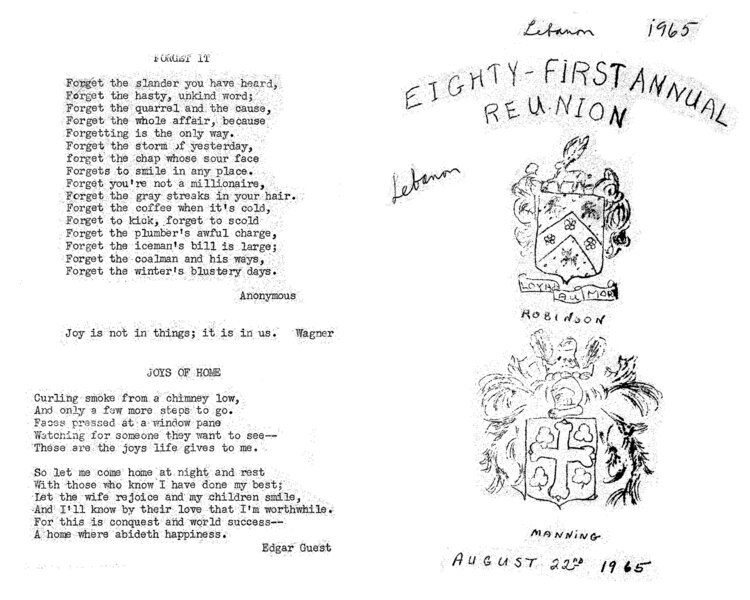 FORGET IT
Forget the slander you have heard,
Forget the hasty, unkind word;
Forget the quarrel and the cause,
Forget the whole affair, because
Forgetting is the only way.
Forget the storm of yesterday,
forget the chap whose sour face
Forgets to smile in any place.
Forget you're not a millionaire,
Forget the gray streaks in your hair.
Forget the coffee when it's cold,
Forget to kick, forget to scold
Forget the plumber's awful charge,
Forget the iceman's bill is large;
Forget the coalman and his ways,
Forget the winter's blustery days.
Anonymous
Joy is not in things; it is in us. Wagner
JOYS OF HOME
Curling smoke from a chimney low,
And only a few more steps to go.
Faces pressed at a window pane
Watching for someone they want to see--
These are the joys life gives to me.
So let me come home at night and rest
With those who know I have done my best;
Let the wife rejoice and my children smile,
And I'll know by their love that I'm worthwhile.
For this is conquest and world success--
A home where abideth happiness.
Edgar Guest
Lebanon 1965
EIGHTY-FIRST ANNUAL
REUNION
Lebanon
AU MOR
ROBINSON
MANNING
AUGUST 22nd 1965